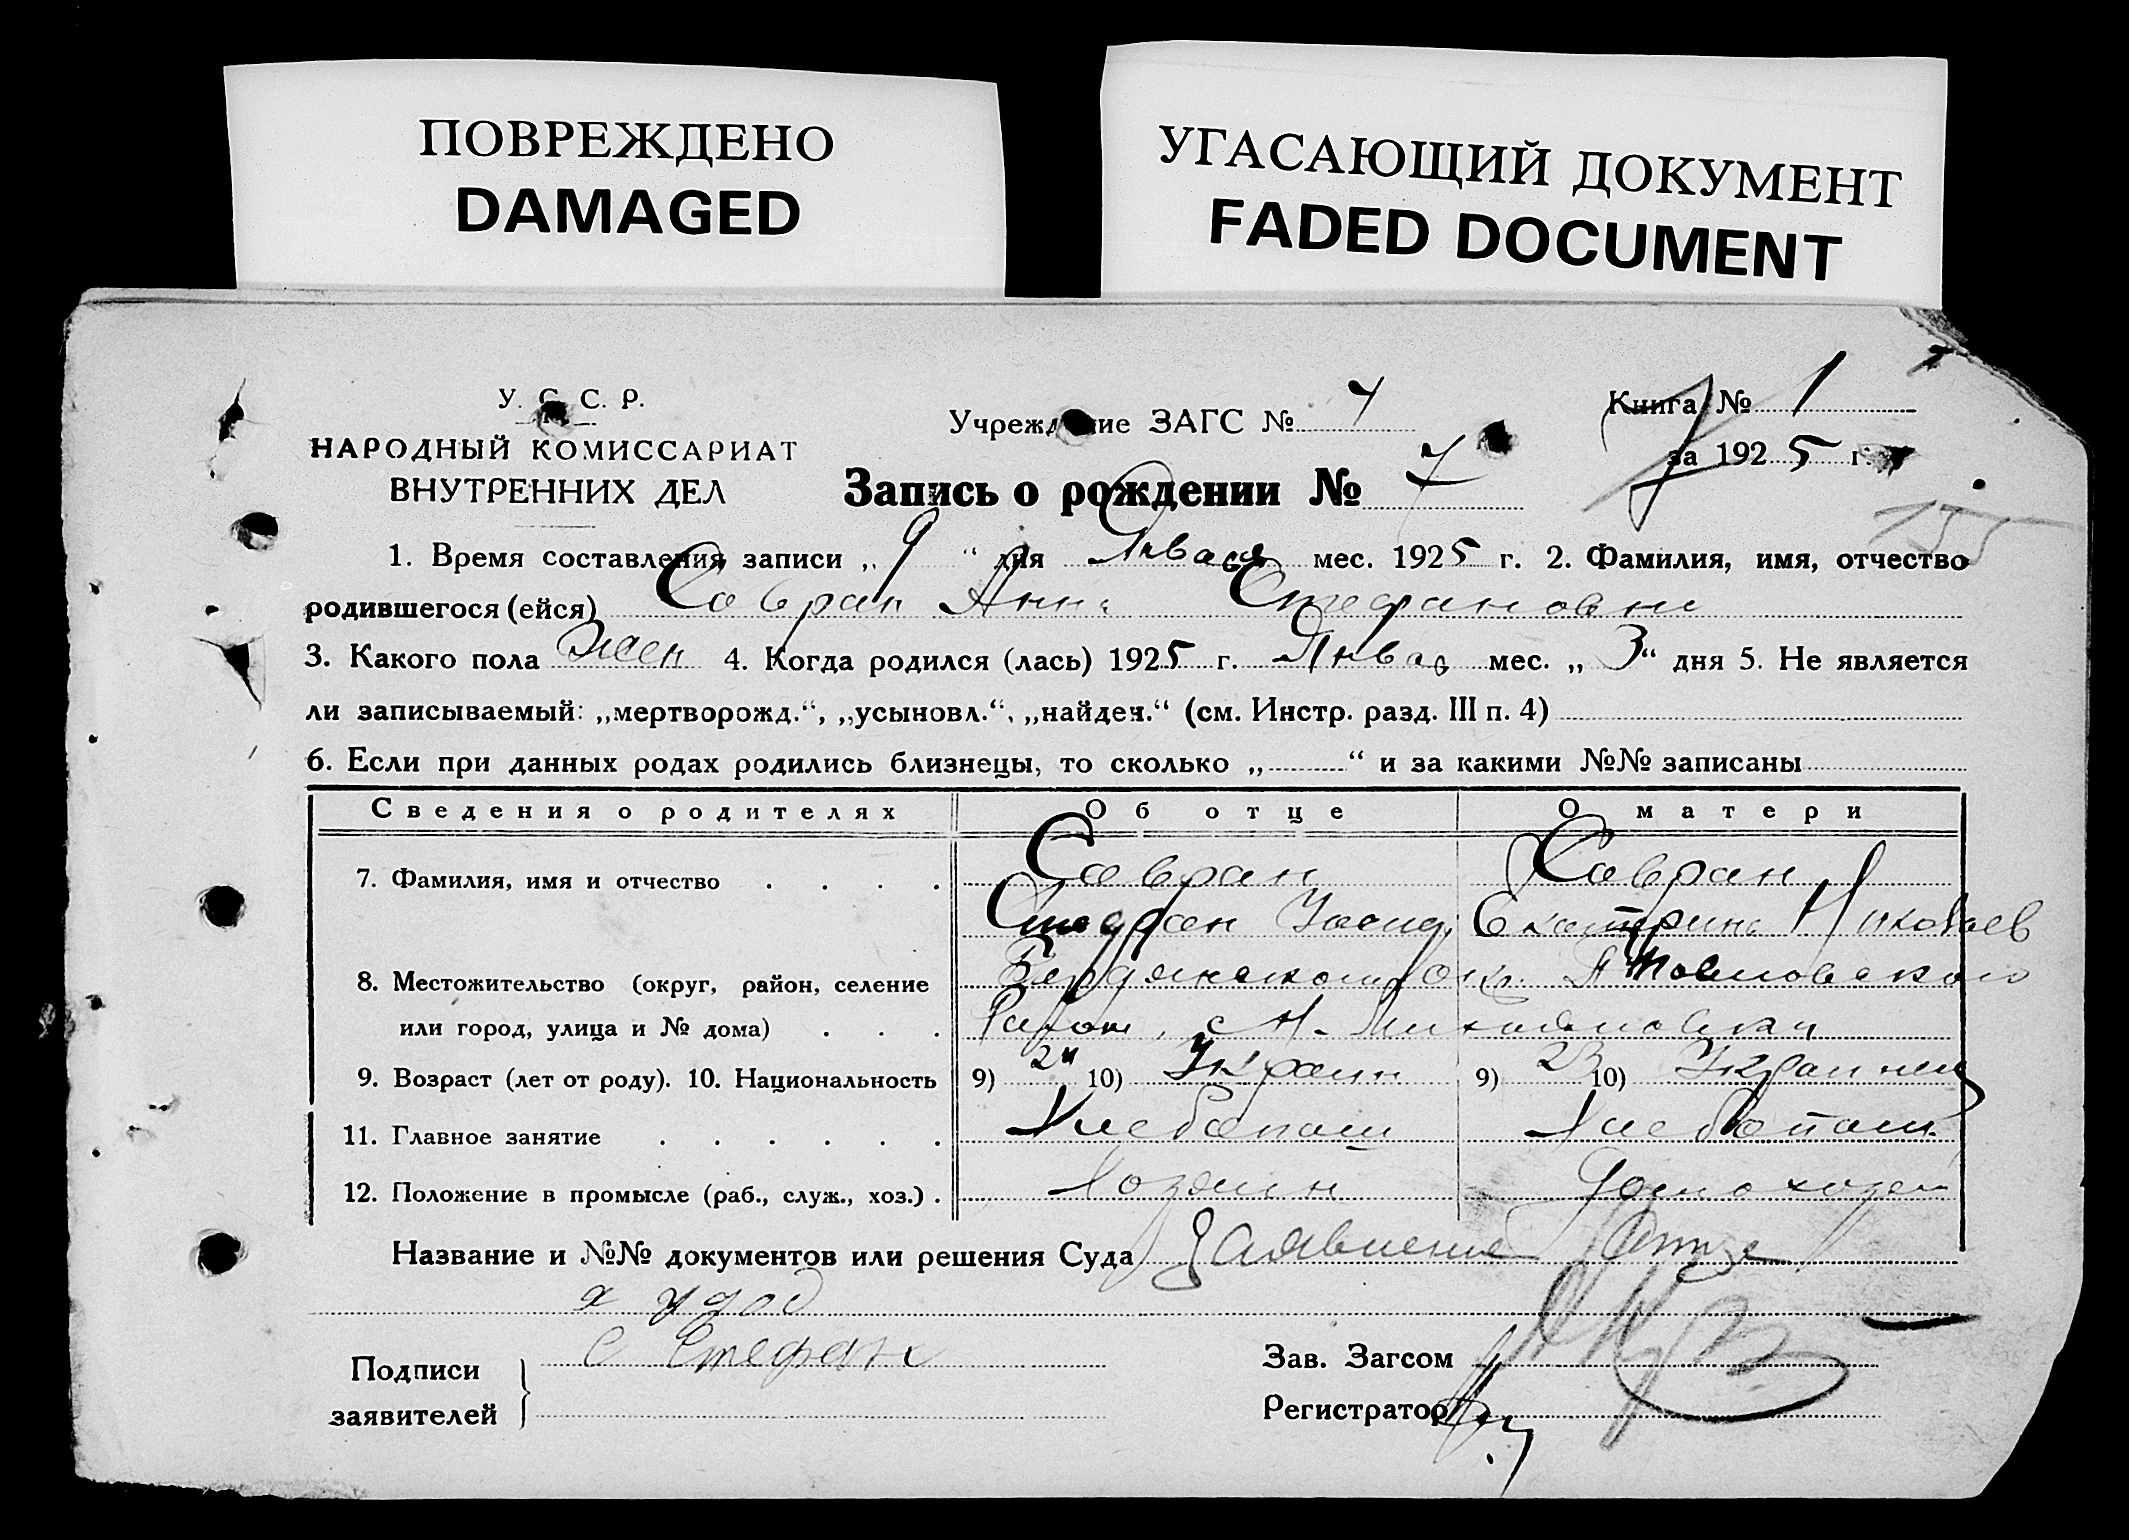 ПОВРЕЖДЕНО
DAMAGED
УГАСАЮЩИЙ ДОКУМЕНТ
FADED DOCUMENT
У. С. С. Р.
НАРОДНЫЙ КОМИССАРИАТ
ВНУТРЕННИХ ДЕЛ
Учреждение ЗАГС №
Книга № 1
за 1925 г.
Запись о рождении № 7
155
1. Время составления записи „9“ дня Января мес. 1925 г. 2. Фамилия, имя, отчество
родившегося (ейся) Савран Анна Стефановна
3. Какого пола Жен 4. Когда родился (лась) 1925 г. Январ мес. „3“ дня 5. Не является
ли записываемый: „мертворожд.“, „усыновл.“, „найден.“ (см. Инстр. разд. III п. 4)
6. Если при данных родах родились близнецы, то сколько „ “ и за какими №№ записаны
Сведения о родителях Об отце О матери
7. Фамилия, имя и отчество Савран Савран
Стефан Екатерина Николаев
8. Местожительство (округ, район, селение Бердянского Окр.
или город, улица и № дома) Район, с Н.-
9. Возраст (лет от роду). 10. Национальность 9) 24 10) Украин 9) 23 10) Украинец
11. Главное занятие Хлебопаш Хлебопаш
12. Положение в промысле (раб., служ., хоз.) Хозяин Домохозяй
Название и №№ документов или решения Суда Заявление Отца
Подписи
заявителей
С Стефан
Зав. Загсом
Регистратор